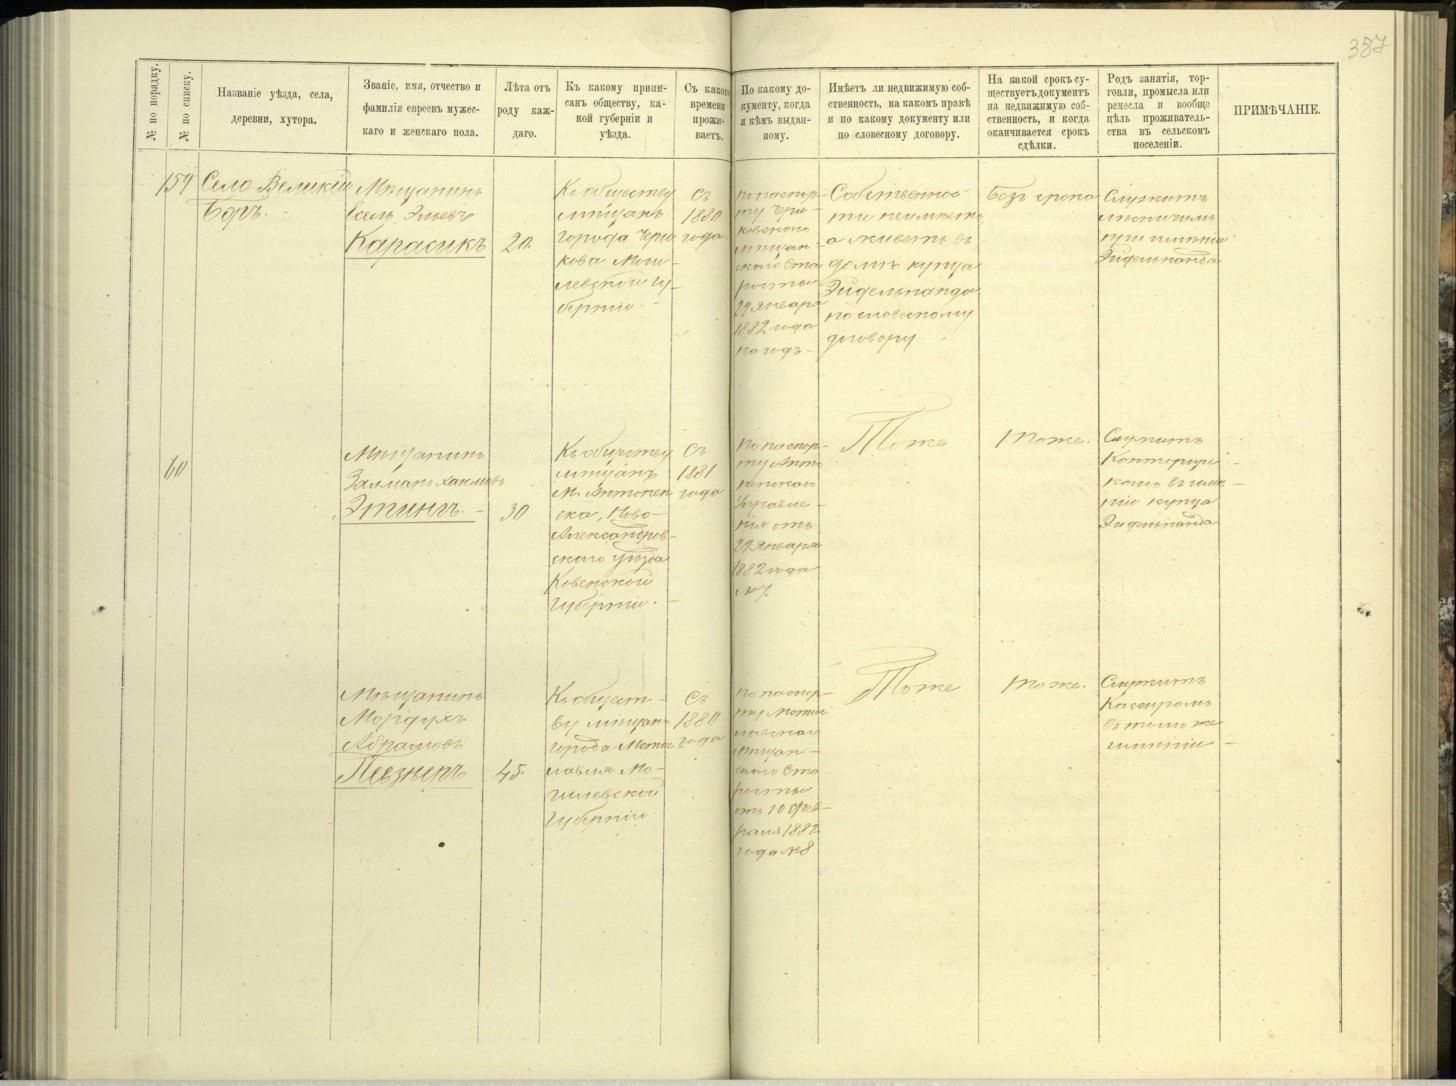 387
№ по порядку.
№ по списку.
Названіе уѣзда, села,
деревни, хутора.
Званіе, имя, отчество и
фамилія евреевъ мужес-
каго и женскаго пола.
Лѣта отъ
роду каж-
даго.
Къ какому припи-
санъ обществу, ка-
кой губерніи и
уѣзда.
Съ какого
времени
прожи-
ваетъ.
По какому до-
кументу, когда
и кѣмъ выдан-
ному.
Имѣетъ ли недвижимую соб-
ственность, на какомъ правѣ
и по какому документу или
по словесному договору.
На какой срокъ су-
ществуетъ документъ
на недвижимую соб-
ственность, и когда
оканчивается срокъ
сдѣлки.
Родъ занятія, тор-
говли, промысла или
ремесла и вообще
цѣль проживатель-
ства въ сельскомъ
поселеніи.
ПРИМѢЧАНІЕ.
159
Село Великій
Боръ.
Мѣщанинъ
Карасикъ
20.
Къ обществу
мѣщанъ
города Чери
кова Моги-
левской гу-
берніи.
Съ
1880
года.
по паспор-
ту Чери-
ковскаго
мѣщан-
скаго Ста
росты
29 Января
1882 года
на годъ
Собственнос-
ти неимѣетъ,
а живетъ въ
домѣ купца
по словесному
договору.
Безъ срока
Служитъ
при имѣніи
60
Мѣщанинъ
Залманъ Хаимовъ
Этингъ.
30
Къ обществу
мѣщанъ
ска, Ново-
Александров-
скаго уѣзда
Ковенской
Губерніи.
Съ
1881
года
По паспор-
ту
Управле-
нія отъ
29 Января
1882 года
№ 7.
Тоже
тоже.
Служитъ
Конторщи-
комъ въ имѣ-
ніи купца
Мѣщанинъ
Мордухъ
Абрамовъ
Певзнеръ
45.
Къ общест-
ву мѣщан
города Мсти
славля Мо-
гилевской
Губерніи
Съ
1880
года
По паспор-
ту Мстис
лавскаго
Мѣщан-
скаго Ста
росты
отъ 10 Фев-
раля 1882
года №8
Тоже
тоже.
Служитъ
Кассиромъ
въ томъ же
имѣніи